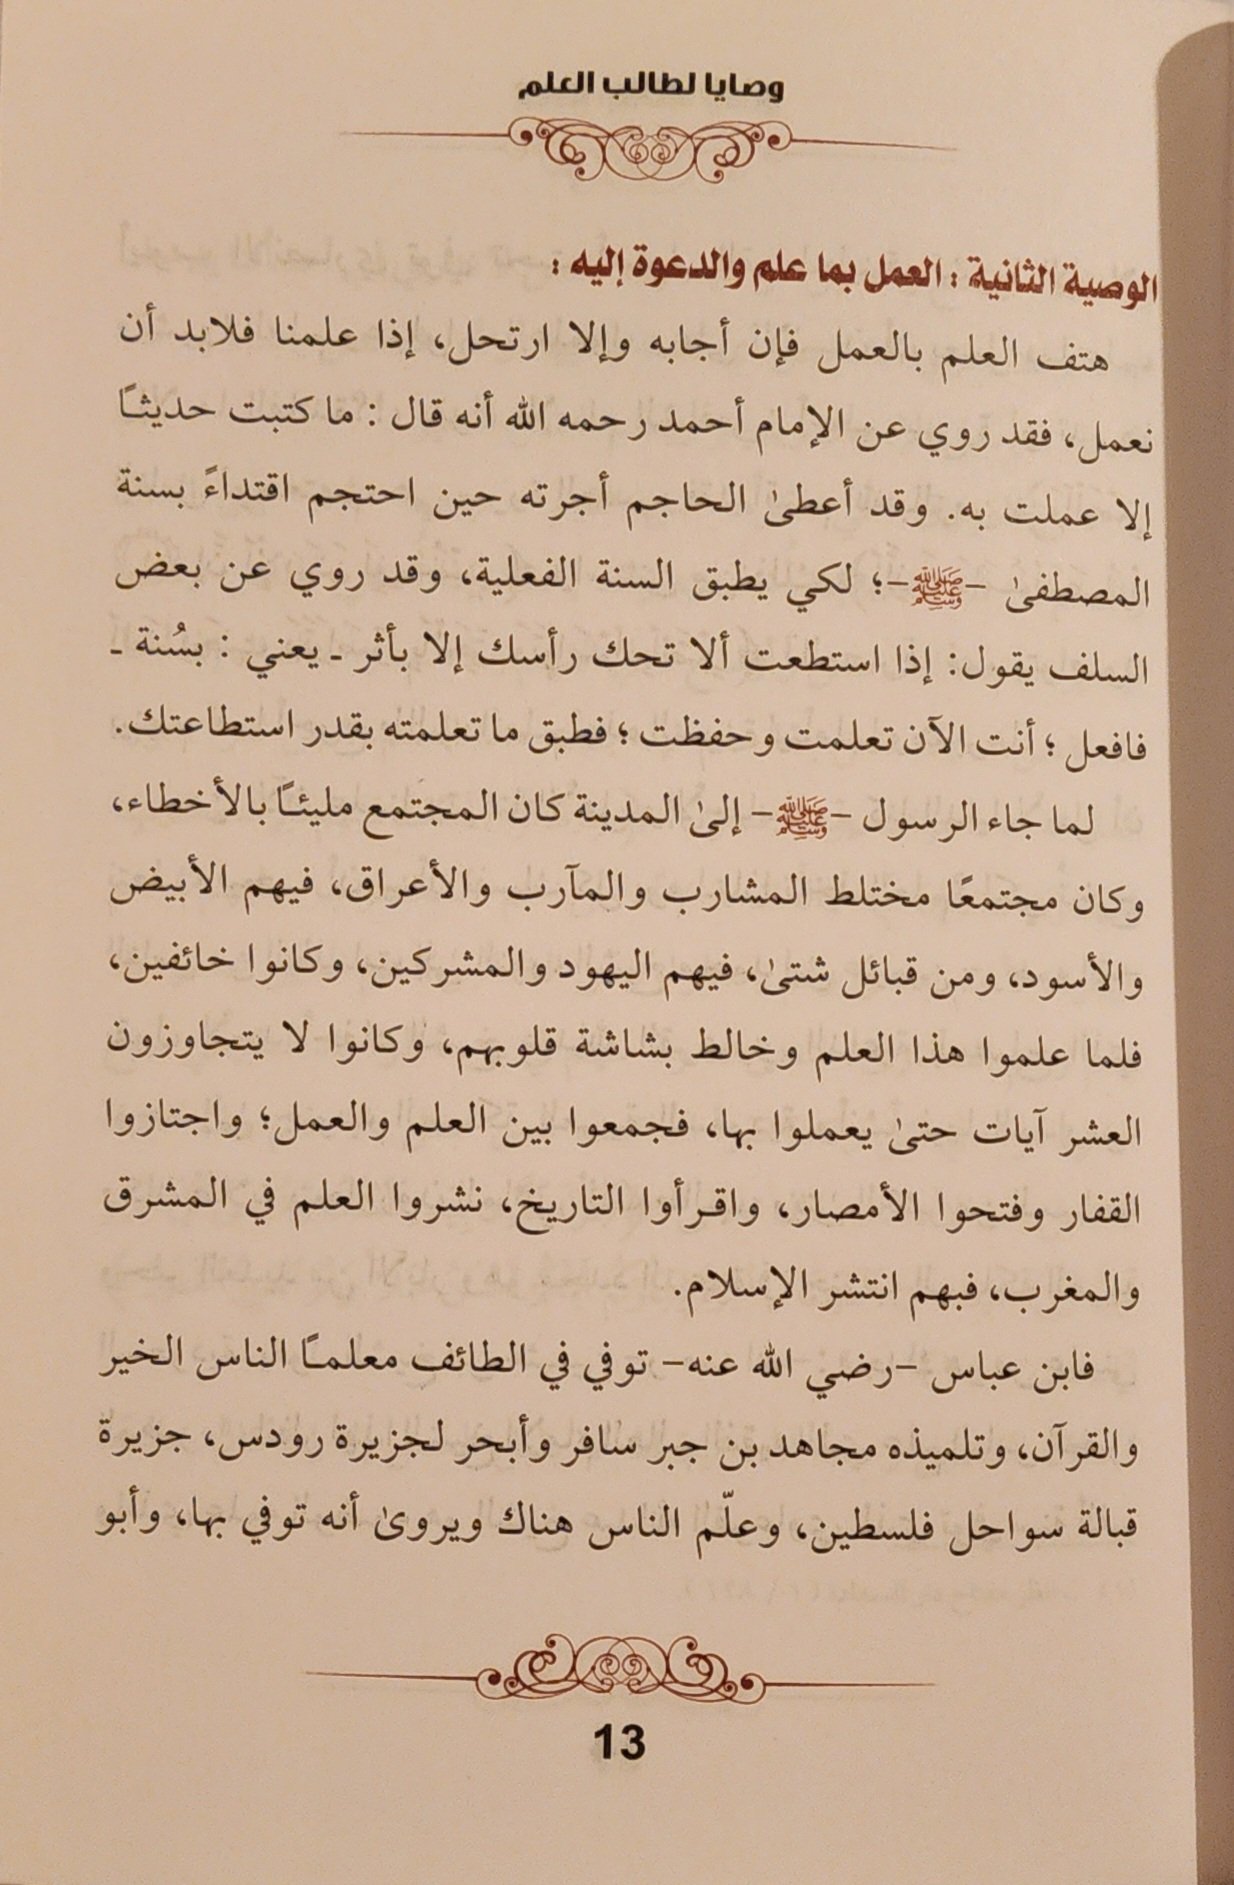 وصايا لطالب العلم
الوصية الثانية : العمل بما علم والدعوة إليه :
هتف العلم بالعمل فإن أجابه وإلا ارتحل، إذا علمنا فلابد أن
نعمل، فقد روي عن الإمام أحمد رحمه الله أنه قال : ما كتبت حديثًا
إلا عملت به. وقد أعطىٰ الحاجم أجرته حين احتجم اقتداءً بسنة
المصطفىٰ -ﷺ-؛ لكي يطبق السنة الفعلية، وقد روي عن بعض
السلف يقول: إذا استطعت ألا تحك رأسك إلا بأثر ـ يعني : بسُنة ـ
فافعل ؛ أنت الآن تعلمت وحفظت ؛ فطبق ما تعلمته بقدر استطاعتك.
لما جاء الرسول -ﷺ- إلىٰ المدينة كان المجتمع مليئًا بالأخطاء،
وكان مجتمعًا مختلط المشارب والمآرب والأعراق، فيهم الأبيض
والأسود، ومن قبائل شتىٰ، فيهم اليهود والمشركين، وكانوا خائفين،
فلما علموا هذا العلم وخالط بشاشة قلوبهم، وكانوا لا يتجاوزون
العشر آيات حتىٰ يعملوا بها، فجمعوا بين العلم والعمل؛ واجتازوا
القفار وفتحوا الأمصار، واقرأوا التاريخ، نشروا العلم في المشرق
والمغرب، فبهم انتشر الإسلام.
فابن عباس -رضي الله عنه- توفي في الطائف معلمًا الناس الخير
والقرآن، وتلميذه مجاهد بن جبر سافر وأبحر لجزيرة رودس، جزيرة
قبالة سواحل فلسطين، وعلّم الناس هناك ويروىٰ أنه توفي بها، وأبو
13